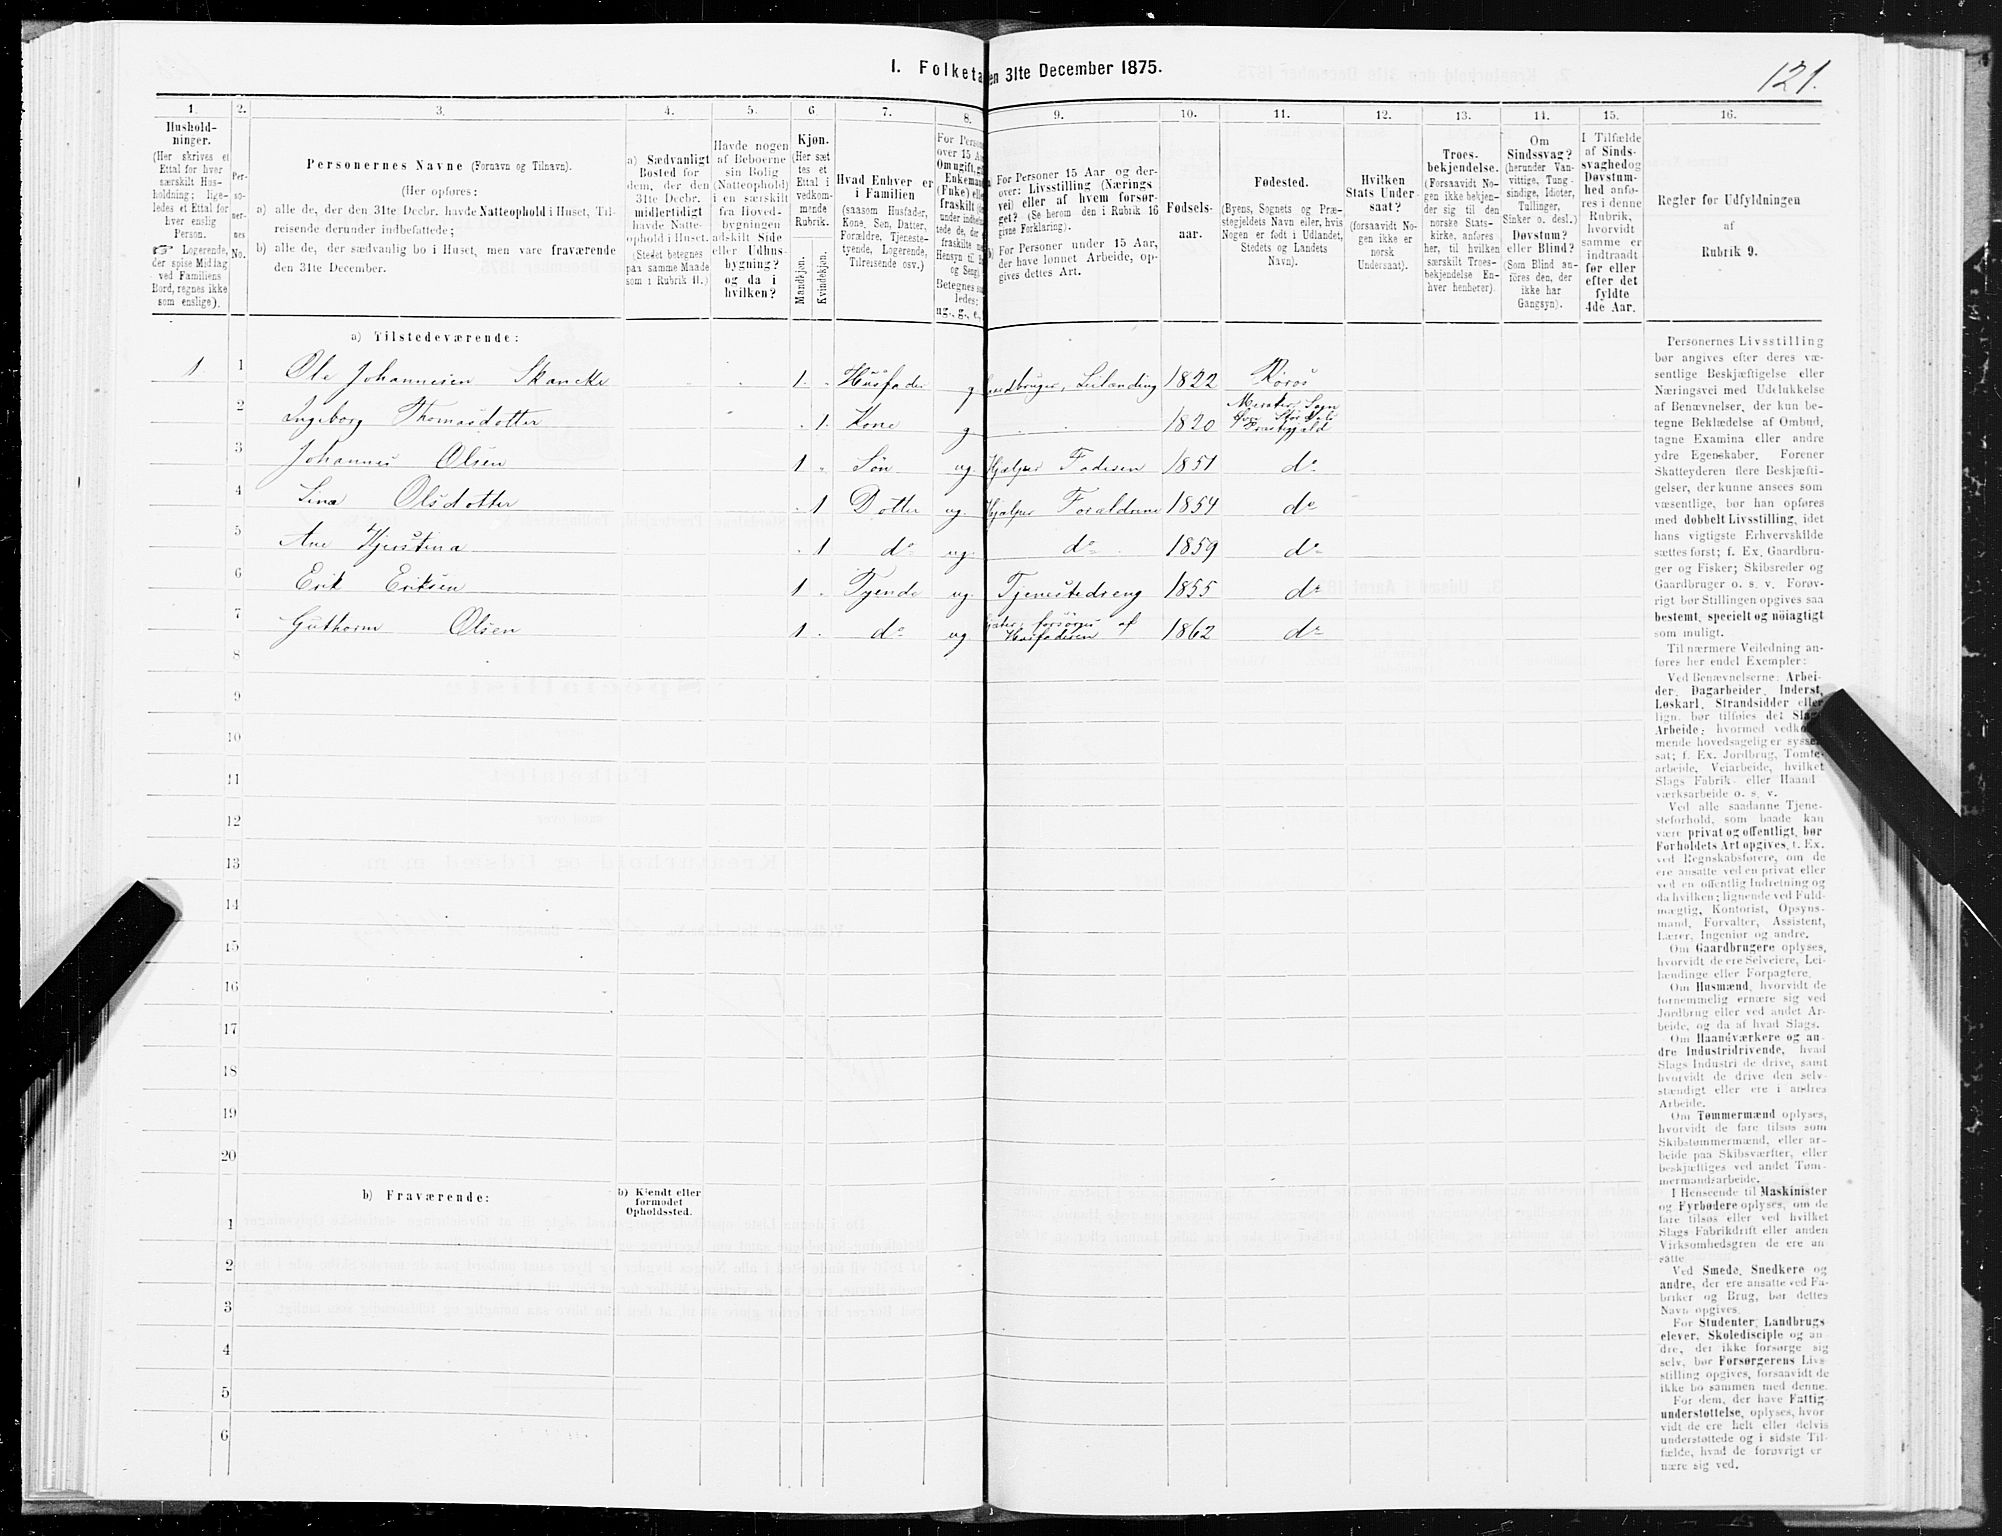 I. Folketa en 31te December 1875.
121.
1.
2.
3.
4.
5.
6.
7.
8.
9.
10.
11.
12.
13.
14.
15.
16.
Hushold-
ninger.
(Her skrives et
Ettal for hver
særskilt Hus-
holdning; lige-
ledes et Ettal for
hver enslig
Person.
☞ Logerende,
der spise Middag
ved Familiens
Bord, regnes ikke
som enslige).
Per-
so-
ner-
nes
No.
Personernes Navne (Fornavn og Tilnavn).
(Her opføres:
a) alle de, der den 31te Decbr. havde Natteophold i Huset, Til-
reisende derunder indbefattede;
b) alle de, der sædvanlig bo i Huset, men vare fraværende
den 31te December.
a) Sædvanligt
Bosted for
dem, der den
31te Decbr.
midlertidigt
havde Natte-
ophold i Huset.
(Stedet betegnes
paa samme Maade
som i Rubrik 11.)
Havde nogen
af Beboerne
sin Bolig
(Natteophold)
i en særskilt
fra Hoved-
bygningen
adskilt Side
eller Udhus-
bygning?
og da i
hvilken?
Kjøn.
(Her sæt
tes et
Ettal i
vedkom-
mende
Rubrik.
Mandkjøn.
Kvindekjøn.
Hvad Enhver er
i Familien
(saasom Husfader,
Kone, Søn, Datter,
Forældre, Tjeneste-
tyende, Logerende,
Tilreisende osv.)
For Perso
over 15 Aa
Om ugift, gi
Enkeman
(Enke) elle
fraskilt (d
under indbe
tede de, de
fraskilte me
Hensyn til B
og Seng).
Betegnes saa
ledes:
ug., g., e.,
For Personer 15 Aar og der-
over: Livsstilling (Nærings
vei) eller af hvem forsør-
get? (Se herom den i Rubrik 16
givne Forklaring).
b) For Personer under 15 Aar,
der have lønnet Arbeide, op-
gives dettes Art.
Fødsels-
aar.
Fødested.
(Byens, Sognets og Præ-
stegjeldets Navn eller, hvis
Nogen er født i Udlandet,
Stedets og Landets
Navn).
Hvilken
Stats Under-
saat?
(forsaavidt No-
gen ikke er
norsk
Undersaat).
Troes-
bekjendelse.
(Forsaavidt No-
gen ikke bekjen-
der sig til den
norske Stats-
kirke, anføres
her, til hvilken
særskilt Troes-
bekjendelse En-
hver henhører).
Om
Sindssvag?
(herunder Van-
vittige, Tung-
sindige, Idioter,
Tullinger,
Sinker o. desl.)
Døvstum?
eller Blind?
(Som Blind an-
føres den, der
ikke har
Gangsyn).
I Tilfælde
af Sinds-
svaghed og
Døvstum-
hed anfø-
res i denne
Rubrik,
hvorvidt
samme er
indtraadt
før eller
efter det
fyldte
4de Aar.
Regler for Udfyldningen
af
Rubrik 9.
a) Tilstedeværende:
1 1 Ole Johannesen Skancke 1. Husfader g Leilænding 1822 Røros
2 Ingeborg Thomasdotter 1. Kone g 1820 Meraker Sogn
Præstegjeld
3 Johannes Olsen 1 Søn ug. Hjælper Faderen 1851 do
4 Lina Olsdotter 1 Dotter ug. Hjælper Forældrene 1854 do
5 Ane Kjerstina 1 do ug. do 1859 do
6 Erik Eriksen 1 Tyende ug. Tjenestedreng 1855 do
7 Guthorm Olsen 1 do ug forsørges af
Husfaderen 1862 do
8
9
10
11
12
13
14
15
16
17
18
19
20
b) Fraværende:
b) Kjendt eller
formodet
Opholdssted.
1
2
3
4
5
6
Personernes Livsstilling
bør angives efter deres væ-
sentlige Beskjæftigelse eller
Næringsvei med Udelukkelse
af Benævnelser, der kun be-
tegne Beklædelse af Ombud,
tagne Examina eller andre
ydre Egenskaber. Forener
Skatteyderen flere Beskjæfti-
gelser, der kunne ansees som
væsentlige, bør han opføres
med dobbelt Livsstilling, idet
hans vigtigste Erhvervskilde
sættes først; f. Ex. Gaardbru-
ger og Fisker; Skibsreder og
Gaardbruger o. s. v. Forøv-
rigt bør Stillingen opgives saa
bestemt, specielt og nöiagtigt
som muligt.
Til nærmere Veiledning an-
føres her endel Exempler:
Ved Benævnelserne: Arbei-
der, Dagarbeider, Inderst,
Løskarl, Strandsidder eller
lign. bør tilføies det Slags
Arbeide, hvormed vedkom-
mende hovedsagelig er syssel-
sat; f. Ex. Jordbrug, Tomte-
arbeide, Veiarbeide, hvilket
Slags Fabrik- eller Haand-
værksarbeide o. s. v.
Ved alle saadanne Tjene-
steforhold, som baade kan
være privat og offentligt, bør
Forholdets Art opgives, f. Ex.
ved Regnskabsførere, om de
ere ansatte ved en privat eller
ved en offentlig Indretning og
da hvilken; lignende ved Fuld-
mægtig, Kontorist, Opsyns-
mand, Forvalter, Assistent,
Lærer, Ingeniør og andre.
Om Gaardbrugere oplyses,
hvorvidt de ere Selveiere, Lei-
lændinge eller Forpagtere.
Om Husmænd, hvorvidt de
fornemmelig ernære sig ved
Jordbrug eller ved andet Ar-
beide, og da af hvad Slags.
Om Haandværkere og an-
dre Industridrivende, hvad
Slags Industri de drive, samt
hvorvidt de drive den selv-
stændigt eller ere i andres
Arbeide.
Om Tømmermænd oplyses,
hvorvidt de fare tilsøs som
Skibstømmermænd, eller ar-
beide paa Skibsværfter, eller
beskjæftiges ved andet Tøm-
mermandsarbeide.
I Henseende til Maskinister
og Fyrbødere oplyses, om de
fare tilsøs eller ved hvilket
Slags Fabrikdrift eller anden
Virksomhedsgren de ere an-
satte.
Ved Smede, Snedkere og
andre, der ere ansatte ved Fa-
briker og Brug, bør dettes
Navn opgives.
For Studenter, Landbrugs-
elever, Skoledisciple og an-
dre, der ikke forsørge sig
selv, bør Forsørgerens Livs-
stilling opgives, forsaavidt de
ikke bo sammen med denne.
For dem, der have Fattig-
understøttelse, oplyses, hvor-
vidt de ere helt eller delvis
understøttede og i sidste Til-
fælde, hvad de forøvrigt er
nære sig ved.